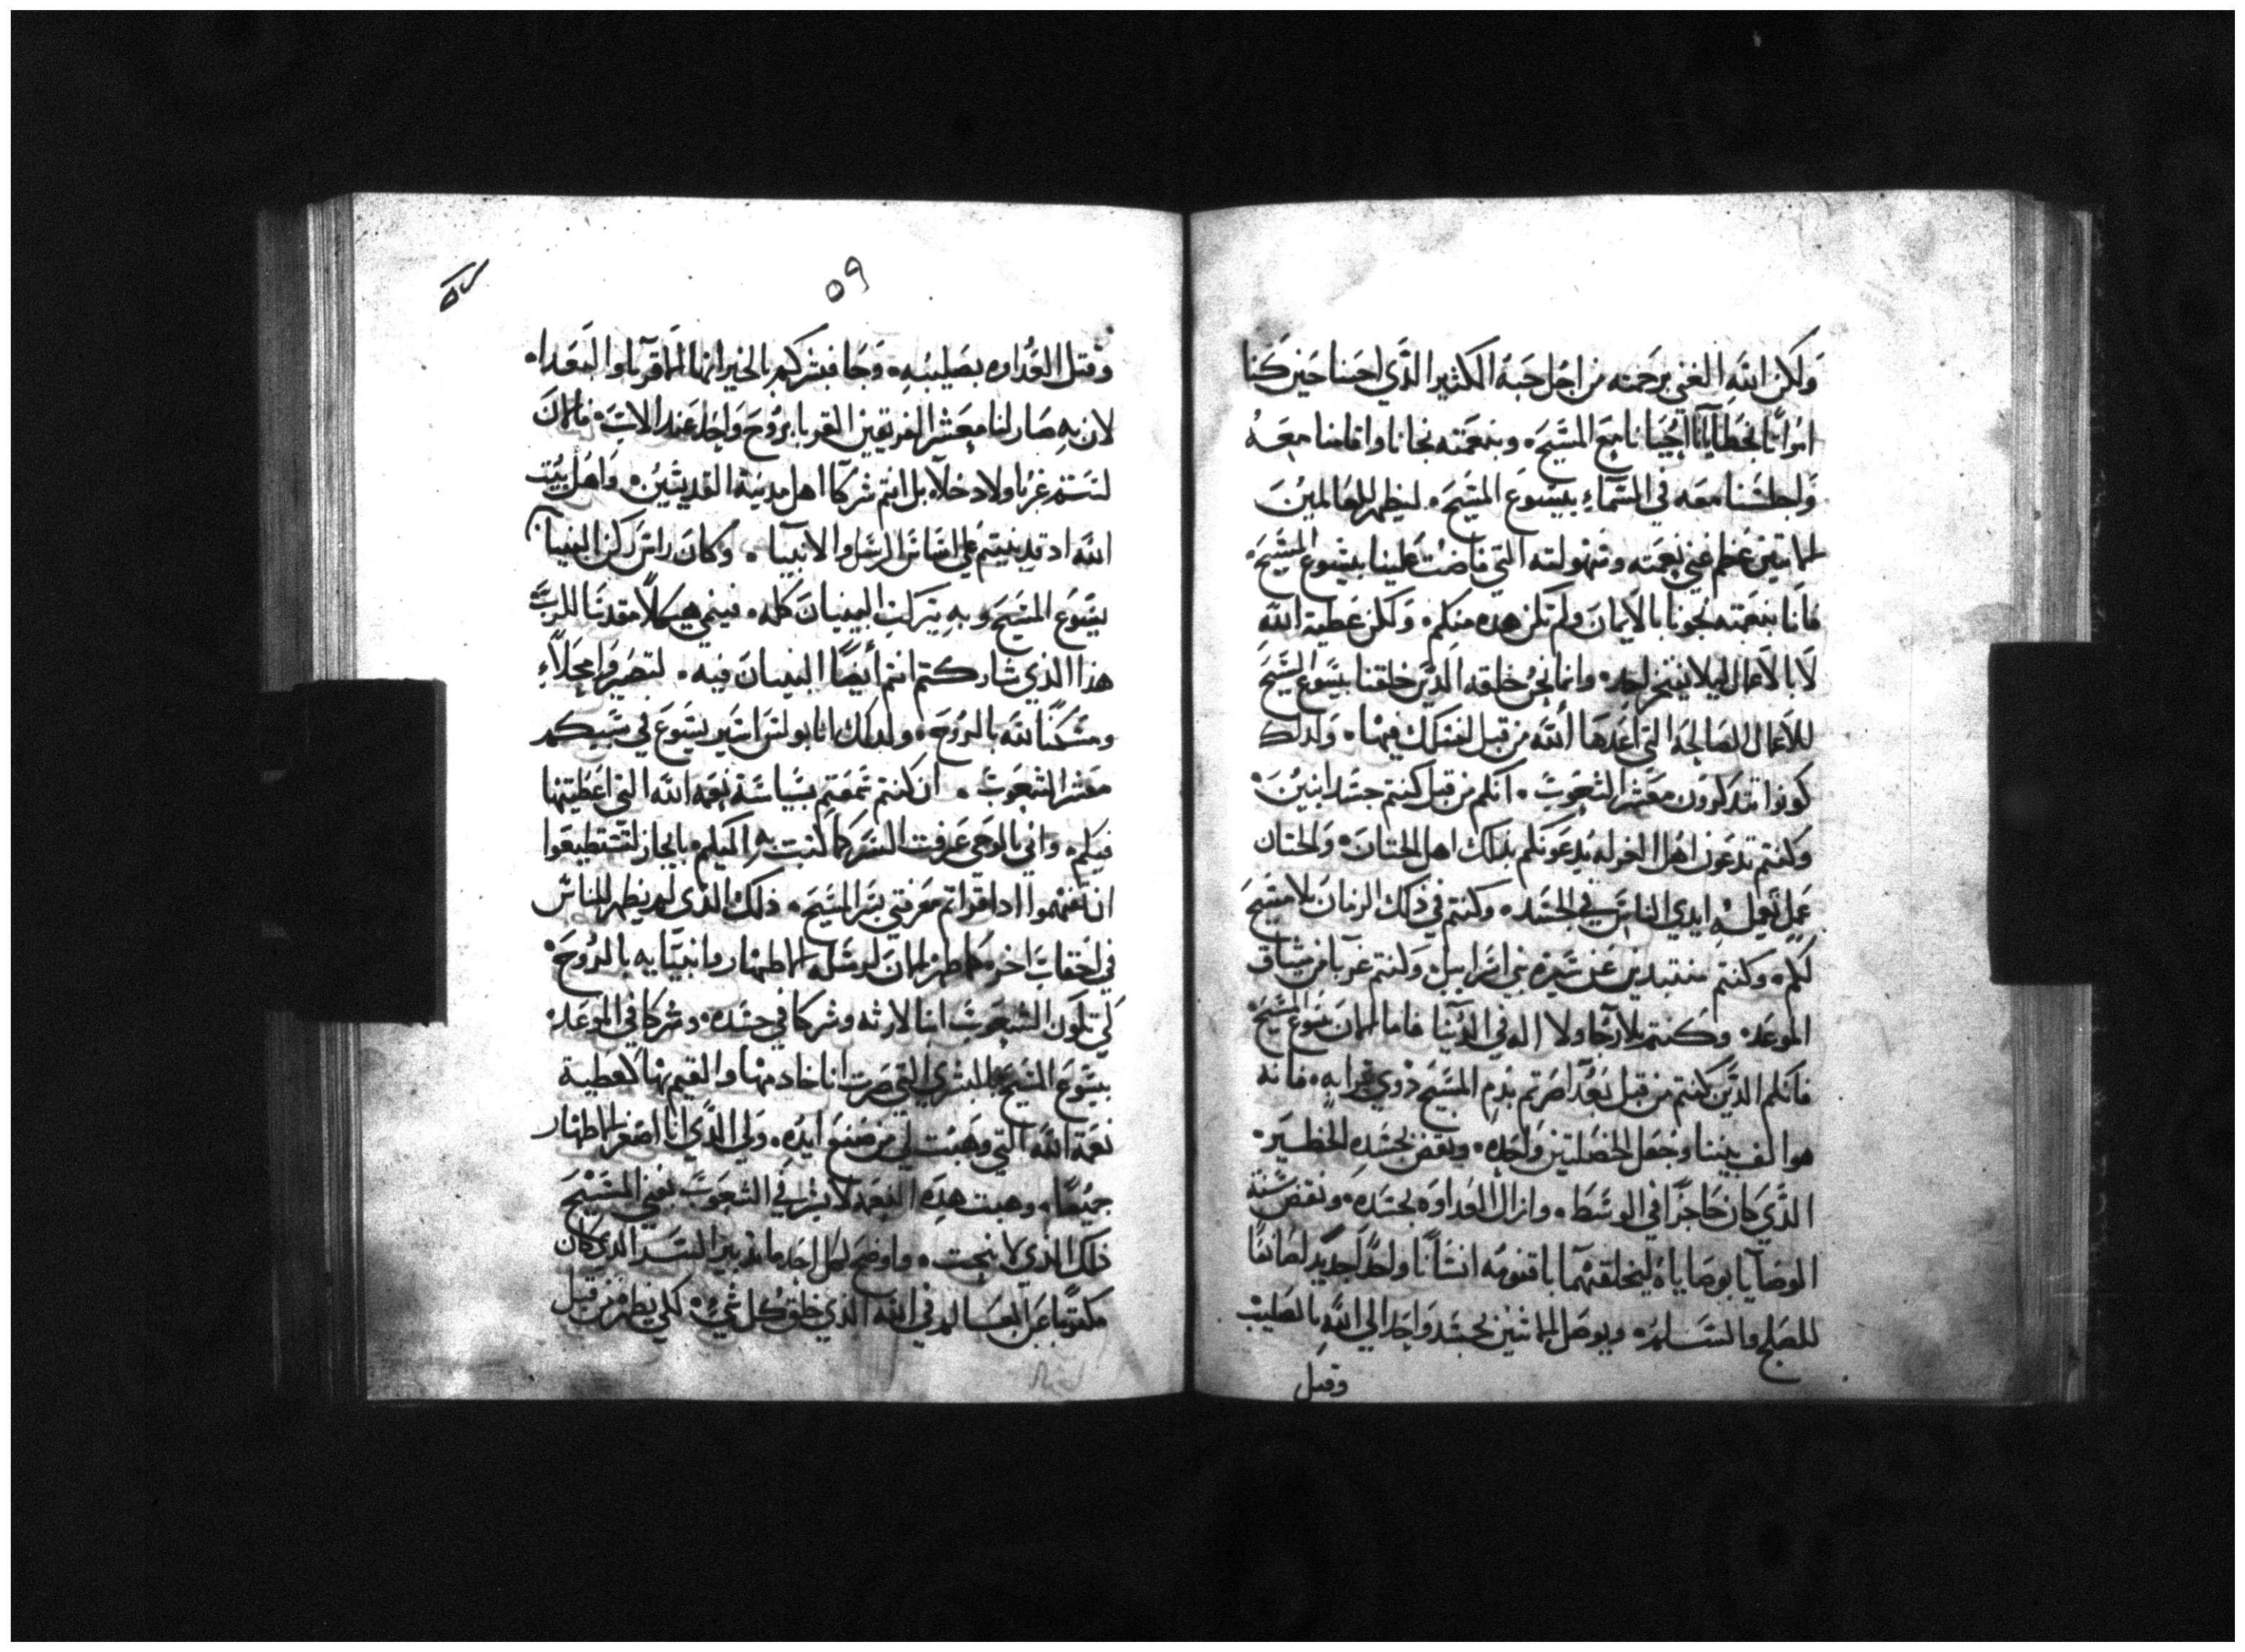 ولكن الله الغني برحمته من اجل حبه الكثير الذي احبنا حين كنا
امواتا بخطايانا احيانا مع المسيح، وبنعمته نجانا واقامنا معه
واجلسنا معه في السماء بيسوع المسيح، ليظهر للعالمين
عظم غني نعمته وسهولته التي فاضت علينا بيسوع المسيح،
فاننا بنعمته نجونا بالايمان ولم تكن هذه منكم، ولكن عطية الله
لا بالاعمال ليلا يفتخر احد، وانما نحن خلقه الذين خلقنا بيسوع المسيح
للاعمال الصالحة التي اعدها الله من قبل لنسلك فيها، ولذلك
كونوا تتذكرون معشر الشعوب، انكم من قبل كنتم جسدانيين،
وكنتم تدعون اهل الغرله يدعونكم بذلك اهل الختان، والختان
عمل تعمله ايدي الناس في الجسد، وكنتم في ذلك الزمان بلا مسيح
لكم، وكنتم منتبدين عن سيرة بني اسراييل، وكنتم غربا من ميثاق
الموعد، وكنتم بلا رجا ولا اله في الدنيا فاما الان بيسوع المسيح
فانكم الذين كنتم من قبل بعدا صرتم بدم المسيح ذوي قرابه، فانه
هو الف بيننا وجعل الخصلتين واحده، ونقض بجسده الحظير،
الذي كان حاجزا في الوسط، وازال العداوه بجسده، ونقض سنة
الوصايا بوصاياه ليخلقهما باقنومه انسانا واحدا جديدا صانعا
للصلح والسلم، ويوصل الاثنين بجسد واحد الي الله بالصليب
وقتل
٥٩
وقتل العداوه بصليبه، وجا فبشركم بالخير ايها الاقربا والبعدا،
لان به صار لنا معشر الفريقين القربا بروح واحد عند الاب، فالان
لستم غربا ولا دخلا، بل انتم شركا اهل مدينة القديسين، واهل بيت
الله اد قد بنيتم علي اساس الرسل والانبيا، وكان راس ركن البنيان
يسوع المسيح وبه يتركب البنيان كله، فينمي هيكلا مقدسا للرب
هذا الذي شاركتم انتم ايضا البنيان فيه، لتصيروا محلا
ومسكنا لله بالروح، ولذلك انا بولس اسير يسوع في سببكم
معشر الشعوب، ان كنتم سمعتم بسياسة نعمه الله التي اعطيتها
فيكم، واني بالوحي عرفت السر كما كتبت به اليكم بايجاز لتستطيعوا
ان تفهموا ادا قراتم معرفتي بسر المسيح، ذلك الذي لم يظهر للناس
في احقاب اخر كما ظهر الان لرسله الاطهار وانبيايه بالروح،
لكي تكون الشعوب ابنا لارثه وشركا في جسده، وشركا في الموعد،
بيسوع المسيح بالبشري التي صرت انا خادمها والقيم بها كعطية
نعمة الله التي وهبت لي من صنيع ايده، ولي الذي انا اصغر الاطهار
جميعا، وهبت هذه النعمه لابشر في الشعوب بغني المسيح
ذلك الذي لا يبحث، واوضح لكل احد ما تدبير السر الذي كان
مكتوما عن العالم في الله الذي خلق كل شي، لكي يظهر من قبل